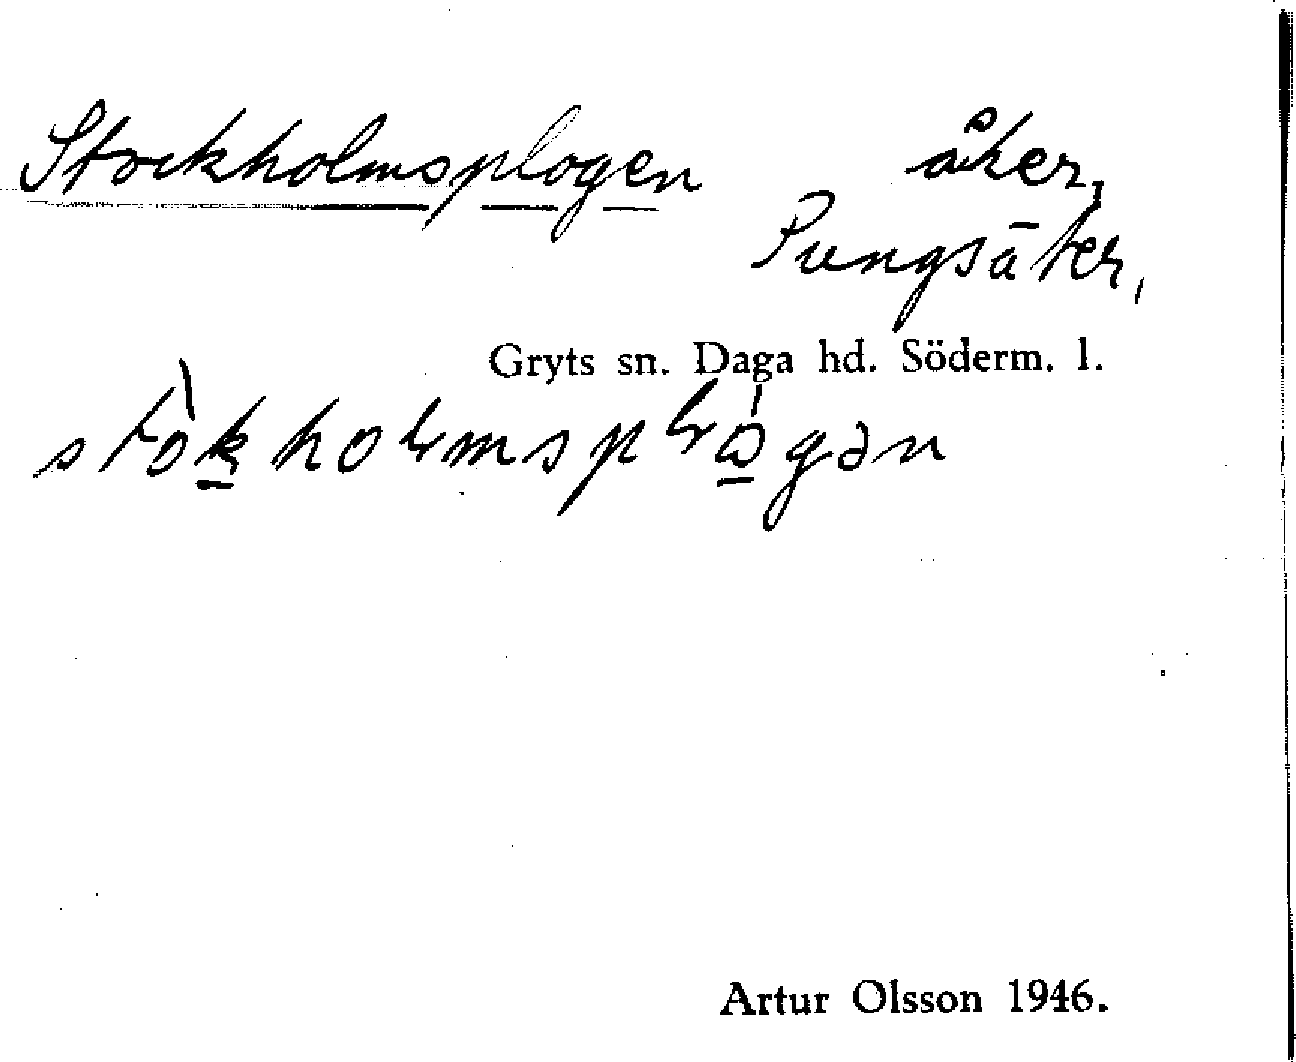 Stockholmsplogen åker,
Pungsäter,
Gryts sn. Daga hd. Söderm. l.
stòkholmsplógən
Artur Olsson 1946.